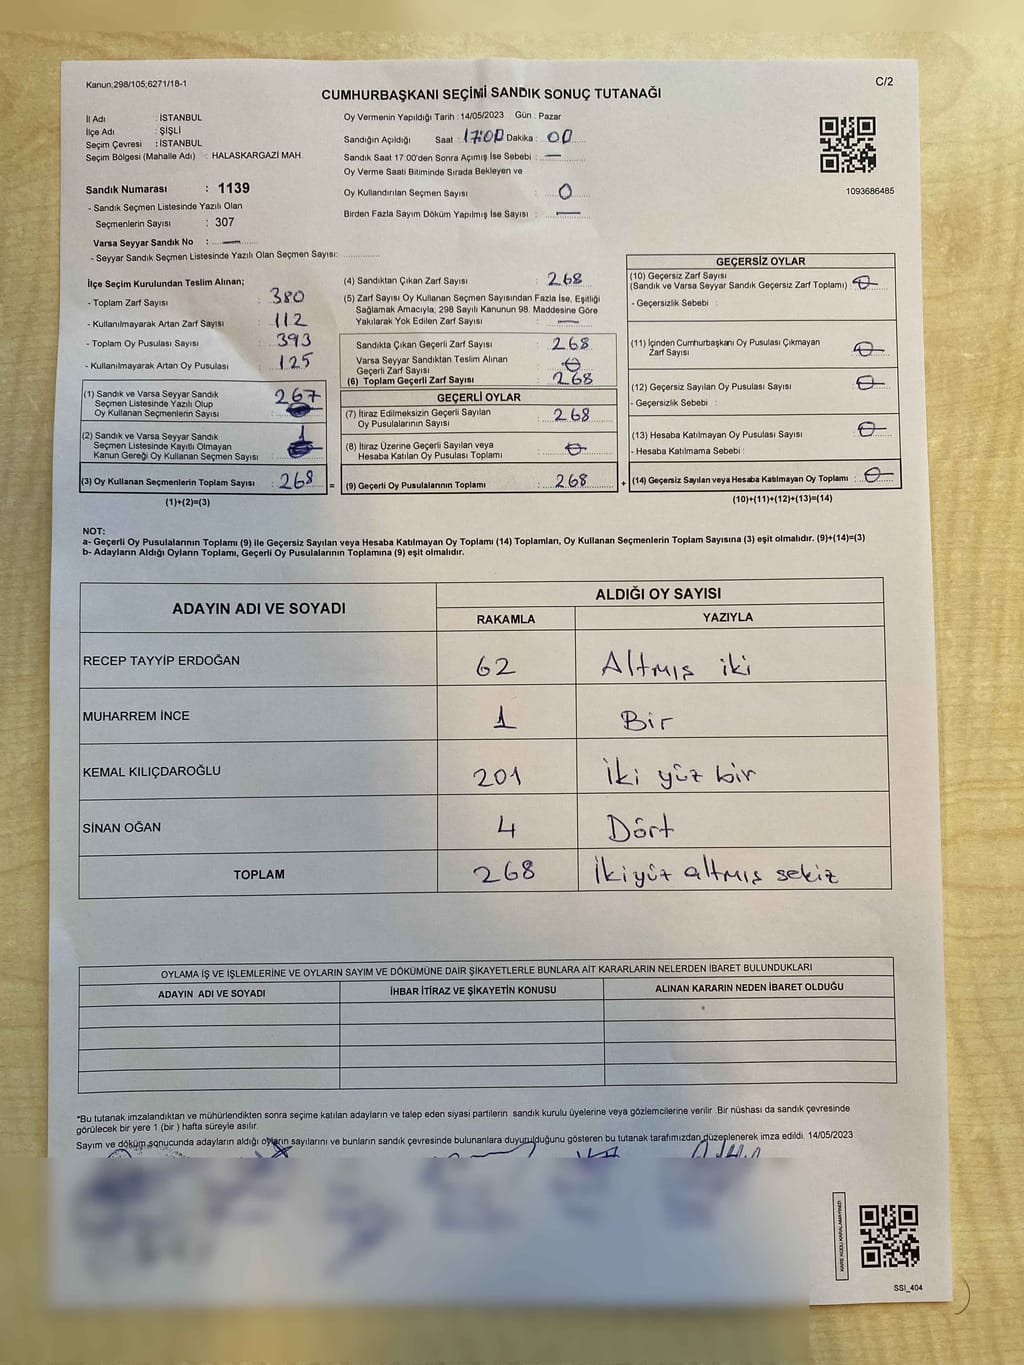 Kanun:298/105;6271/18-1
C/2
CUMHURBAŞKANI SEÇİMİ SANDIK SONUÇ TUTANAĞI
İl Adı : İSTANBUL
İlçe Adı : ŞİŞLİ
Seçim Çevresi : İSTANBUL
Seçim Bölgesi (Mahalle Adı) : HALASKARGAZİ MAH.
Sandık Numarası : 1139
- Sandık Seçmen Listesinde Yazılı Olan
Seçmenlerin Sayısı : 307
Varsa Seyyar Sandık No : —
- Seyyar Sandık Seçmen Listesinde Yazılı Olan Seçmen Sayısı: ..............
Oy Vermenin Yapıldığı Tarih : 14/05/2023 Gün : Pazar
Sandığın Açıldığı Saat : 17:00 Dakika : 00
Sandık Saat 17:00'den Sonra Açımış İse Sebebi : —
Oy Verme Saati Bitiminde Sırada Bekleyen ve
Oy Kullandırılan Seçmen Sayısı : 0
Birden Fazla Sayım Döküm Yapılmış İse Sayısı : —
1093686485
İlçe Seçim Kurulundan Teslim Alınan;
- Toplam Zarf Sayısı : 380
- Kullanılmayarak Artan Zarf Sayısı : 112
- Toplam Oy Pusulası Sayısı : 393
- Kullanılmayarak Artan Oy Pusulası : 125
(1) Sandık ve Varsa Seyyar Sandık
Seçmen Listesinde Yazılı Olup
Oy Kullanan Seçmenlerin Sayısı : 267
(2) Sandık ve Varsa Seyyar Sandık
Seçmen Listesinde Kayıtlı Olmayan
Kanun Gereği Oy Kullanan Seçmen Sayısı : 1
(3) Oy Kullanan Seçmenlerin Toplam Sayısı : 268
(1)+(2)=(3)
(4) Sandıktan Çıkan Zarf Sayısı : 268
(5) Zarf Sayısı Oy Kullanan Seçmen Sayısından Fazla İse, Eşitliği
Sağlamak Amacıyla; 298 Sayılı Kanunun 98. Maddesine Göre
Yakılarak Yok Edilen Zarf Sayısı : —
Sandıkta Çıkan Geçerli Zarf Sayısı : 268
Varsa Seyyar Sandıktan Teslim Alınan
Geçerli Zarf Sayısı : 0
(6) Toplam Geçerli Zarf Sayısı : 268
GEÇERLİ OYLAR
(7) İtiraz Edilmeksizin Geçerli Sayılan
Oy Pusulalarının Sayısı : 268
(8) İtiraz Üzerine Geçerli Sayılan veya
Hesaba Katılan Oy Pusulası Toplamı : 0
= (9) Geçerli Oy Pusulalarının Toplamı : 268
GEÇERSİZ OYLAR
(10) Geçersiz Zarf Sayısı
(Sandık ve Varsa Seyyar Sandık Geçersiz Zarf Toplamı) : 0
- Geçersizlik Sebebi :
(11) İçinden Cumhurbaşkanı Oy Pusulası Çıkmayan
Zarf Sayısı : 0
(12) Geçersiz Sayılan Oy Pusulası Sayısı : 0
- Geçersizlik Sebebi :
(13) Hesaba Katılmayan Oy Pusulası Sayısı : 0
- Hesaba Katılmama Sebebi :
+ (14) Geçersiz Sayılan veya Hesaba Katılmayan Oy Toplamı : 0
(10)+(11)+(12)+(13)=(14)
NOT:
a- Geçerli Oy Pusulalarının Toplamı (9) ile Geçersiz Sayılan veya Hesaba Katılmayan Oy Toplamı (14) Toplamları, Oy Kullanan Seçmenlerin Toplam Sayısına (3) eşit olmalıdır. (9)+(14)=(3)
b- Adayların Aldığı Oyların Toplamı, Geçerli Oy Pusulalarının Toplamına (9) eşit olmalıdır.
ADAYIN ADI VE SOYADI ALDIĞI OY SAYISI
RAKAMLA YAZIYLA
RECEP TAYYİP ERDOĞAN 62 Altmış iki
MUHARREM İNCE 1 Bir
KEMAL KILIÇDAROĞLU 201 İki yüz bir
SİNAN OĞAN 4 Dört
TOPLAM 268 İkiyüz altmış sekiz
OYLAMA İŞ VE İŞLEMLERİNE VE OYLARIN SAYIM VE DÖKÜMÜNE DAİR ŞİKAYETLERLE BUNLARA AİT KARARLARIN NELERDEN İBARET BULUNDUKLARI
ADAYIN ADI VE SOYADI İHBAR İTİRAZ VE ŞİKAYETİN KONUSU ALINAN KARARIN NEDEN İBARET OLDUĞU
*Bu tutanak imzalandıktan ve mühürlendikten sonra seçime katılan adayların ve talep eden siyasi partilerin sandık kurulu üyelerine veya gözlemcilerine verilir .Bir nüshası da sandık çevresinde
görülecek bir yere 1 (bir ) hafta süreyle asılır.
Sayım ve döküm sonucunda adayların aldığı oyların sayılarını ve bunların sandık çevresinde bulunanlara duyurulduğunu gösteren bu tutanak tarafımızdan düzenlenerek imza edildi. 14/05/2023
KARE KODU KARALAMAYINIZ!
SSI_404